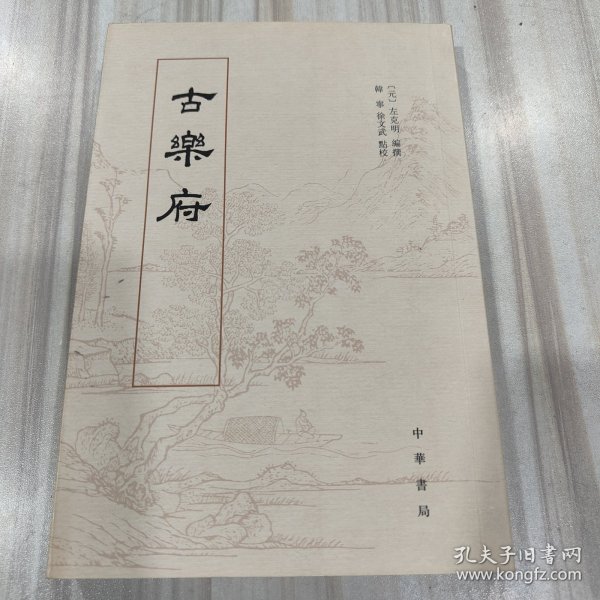 古樂府
〔元〕左克明 編撰
韓寧 徐文武 點校
中華書局
孔夫子旧書网
www.kongfz.com